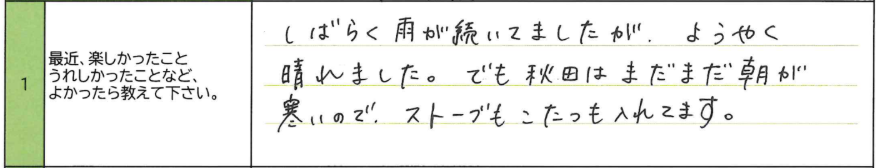 1
最近、楽しかったこと
うれしかったことなど、
よかったら教えて下さい。
しばらく雨が続いてましたが、ようやく
晴れました。でも秋田はまだまだ朝が
寒いので、ストーブもこたつも入れてます。